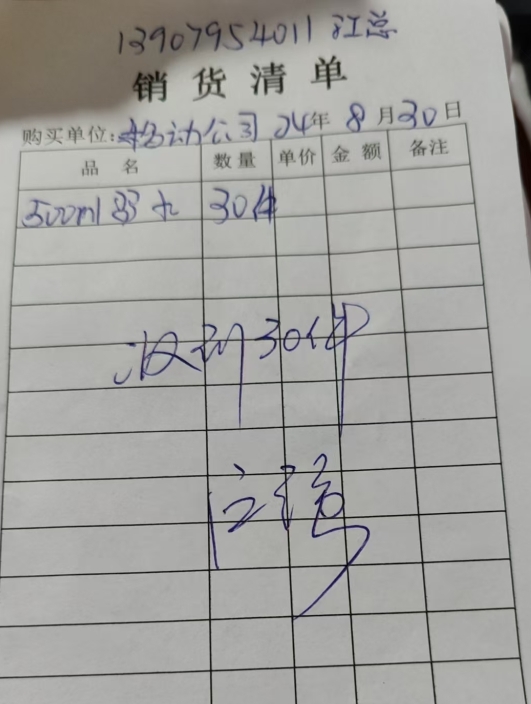 13907954011 江总
销货清单
购买单位: 移动公司 24年 8月30日
品名 数量 单价 金额 备注
500ml 30件
收到30件